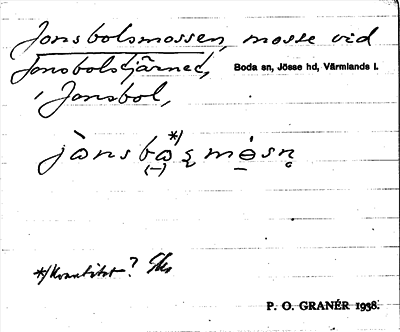 Jonsbolsmossen, mosse vid
Jonsbolstjärnet,
Boda sn, Jösse hd, Värmlands l.
i Jonsbol,
*/ Kvantitet?
P. O. GRANÉR 1938.